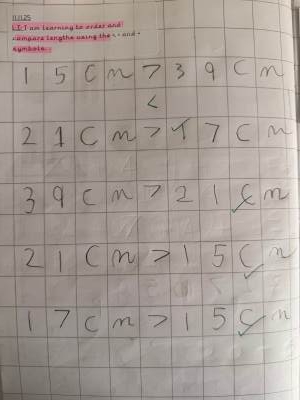 11.11.25
L.I: I am learning to order and
compare lengths using the < > and =
symbols.
15cm > 39cm
<
21cm > 17cm
39cm > 21cm
21cm > 15cm
17cm > 15cm